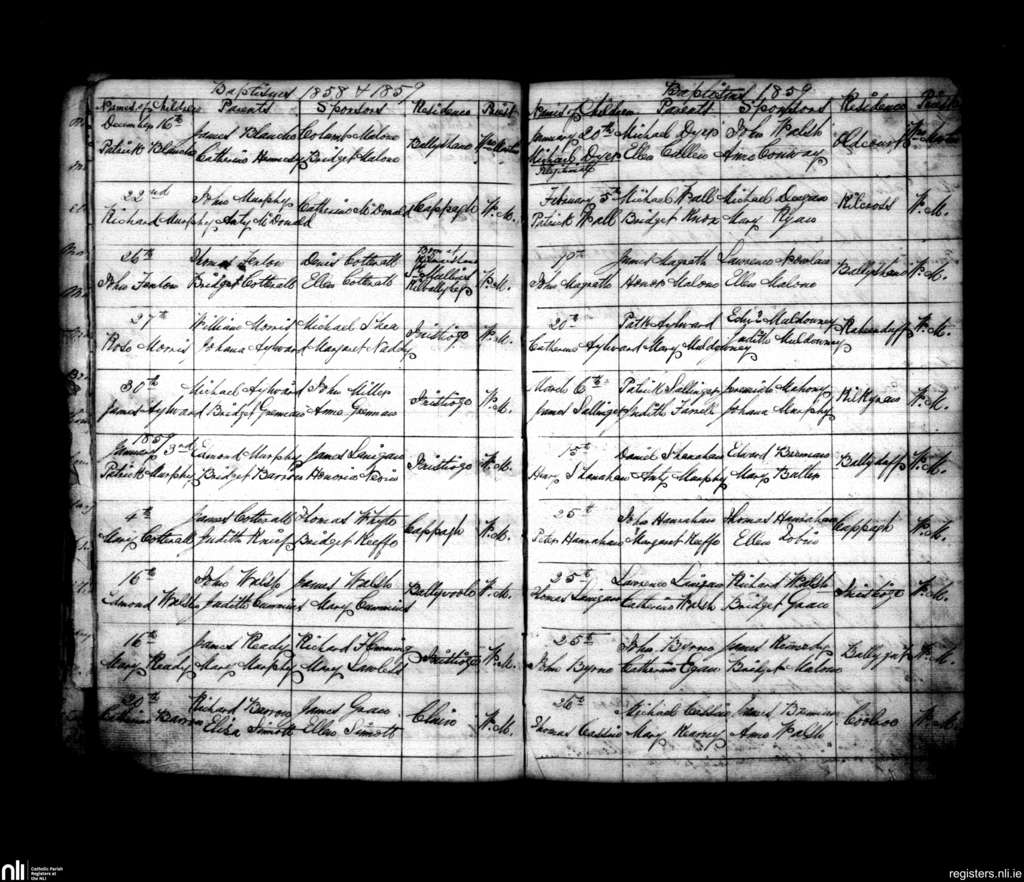 Baptisms 1858 & 1859
Names of Children Parents Sponsors Residence Priest
December 16th James Blanche Colamb Malone
Patrick Blanche Catherine Hennesy Bridget Malone Ballyshane Wm
22nd John Murphy Catherine McDonald Cappagh W. M.
Richard Murphy Anty McDonald
26th Thomas Fenlon Denis Cotterall Born at
John Fenlon Bridget Cotterall Ellen Cotterall W. M.
27th William Morris Michael Shea Inistioge W. M.
Rose Morris Johana Aylward Margaret Naddy
30th Michael Aylward John Miller Inistioge W. M.
James Aylward Bridget Grennan Anne Grennan
1859
January 3rd Edmond Murphy James Lanigan Inistioge W. M.
Patrick Murphy Bridget Barron Honoria Nevin
4th James Cotterall Thomas Whyte Cappagh W. M.
Mary Cotterall Judith Knief Bridget Keeffe
16th John Walsh James Walsh Ballyvoole W. M.
Edmond Walsh Judith Cummins Mary Cummins
16th James Ready Richard Flemming Inistioge W. M.
Mary Ready Mary Murphy Mary
20th Richard Barron James Grace Cluin W. M.
Catherine Barron Eliza Simott Ellen Simott
Baptisms 1859
Names of Children Parents Sponsors Residence Priest
January 20th Michael Dyer John Walsh Oldcourt Wm
Michael Dyer Ellen Cullen Anne Conway
February 5th Michael Wall Michael Duggan Kilcross W. M.
Patrick Wall Bridget Knox Mary Ryan
James Magrath Lawrence Ballyshane W. M.
John Magrath Honor Malone Ellen Malone
20th Patk Aylward Edmd Muldowney W. M.
Catherine Aylward Mary Muldowney Judith Muldowney
March 6th Patrick Sallinger Jeremiah Mahony W. M.
James Sallinger Judith Farrell Johana Murphy
15th Daniel Shanahan Edward Brennan Ballyduff W. M.
Henry Shanahan Anty Murphy Mary Butler
25th John Hanrahan Thomas Hanrahan Cappagh W. M.
Peter Hanrahan Margaret Keeffe Ellen Tobin
25th Lawrence Lanigan Richard Walsh Inistioge W. M.
Thomas Lanigan Catherine Walsh Bridget Grace
25th John Byrne James Kennedy W. M.
John Byrne Catherine Egan Bridget Malone
26th Michael Cassin James Brennan Cooleo W. M.
Thomas Cassin Mary Kearney Anne Walsh
nli
Catholic Parish
Registers at
the NLI
registers.nli.ie